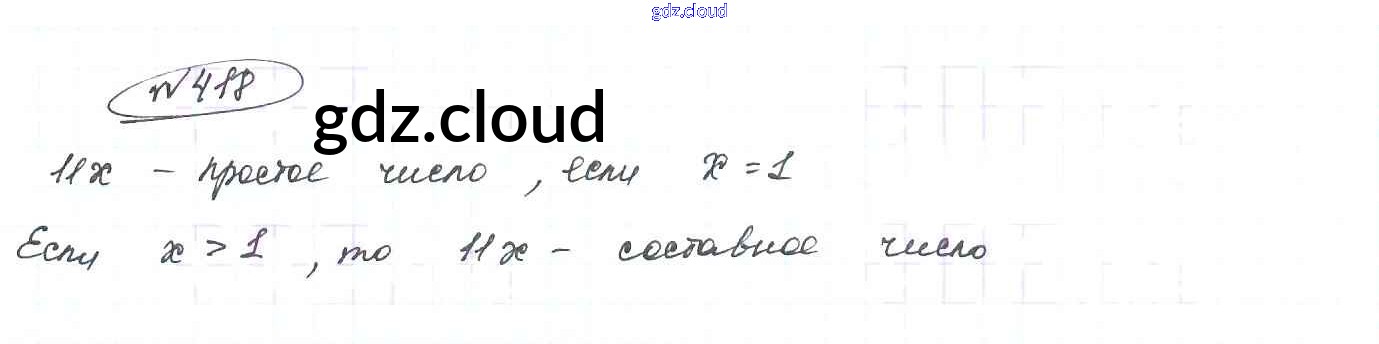 gdz.cloud
№ 418
gdz.cloud
11x - простое число, если x = 1
Если x > 1, то 11x - составное число